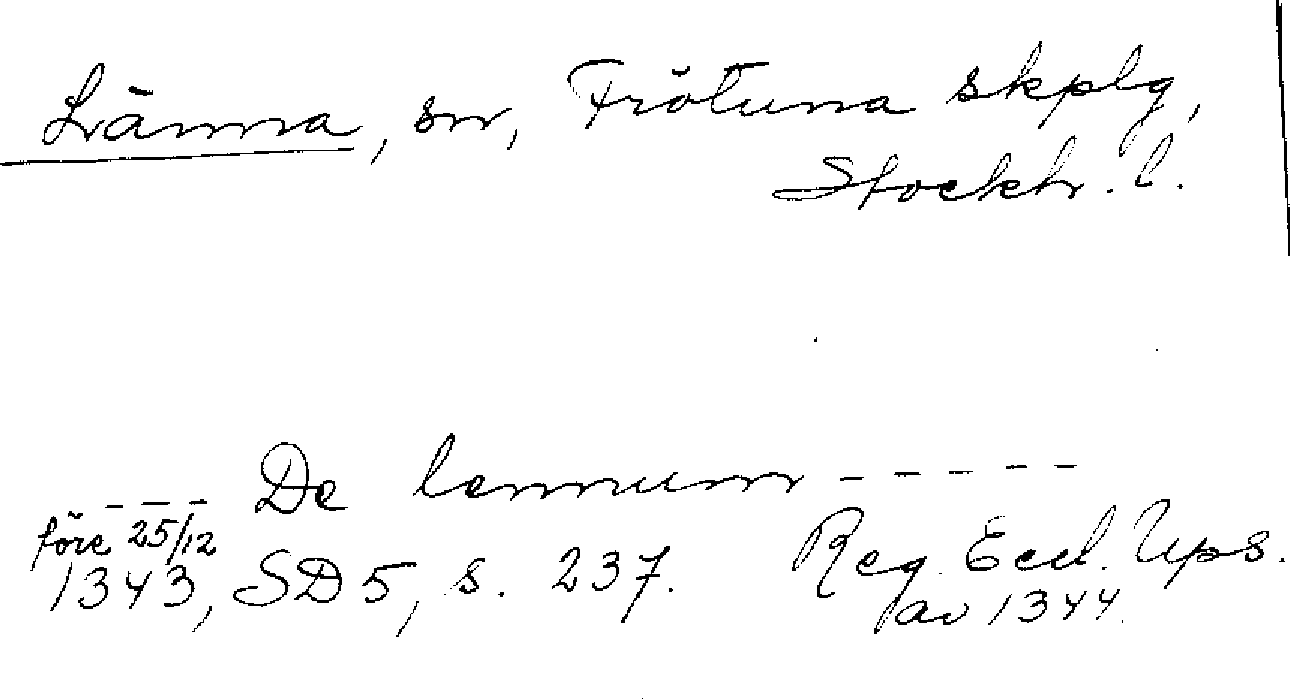 Länna, sn, Frötuna skplg,
Stockh. l.
- - - De lennum - - - - -
före 25/12
1343, SD 5, s. 237. Reg. Eccl. Ups.
av 1344.